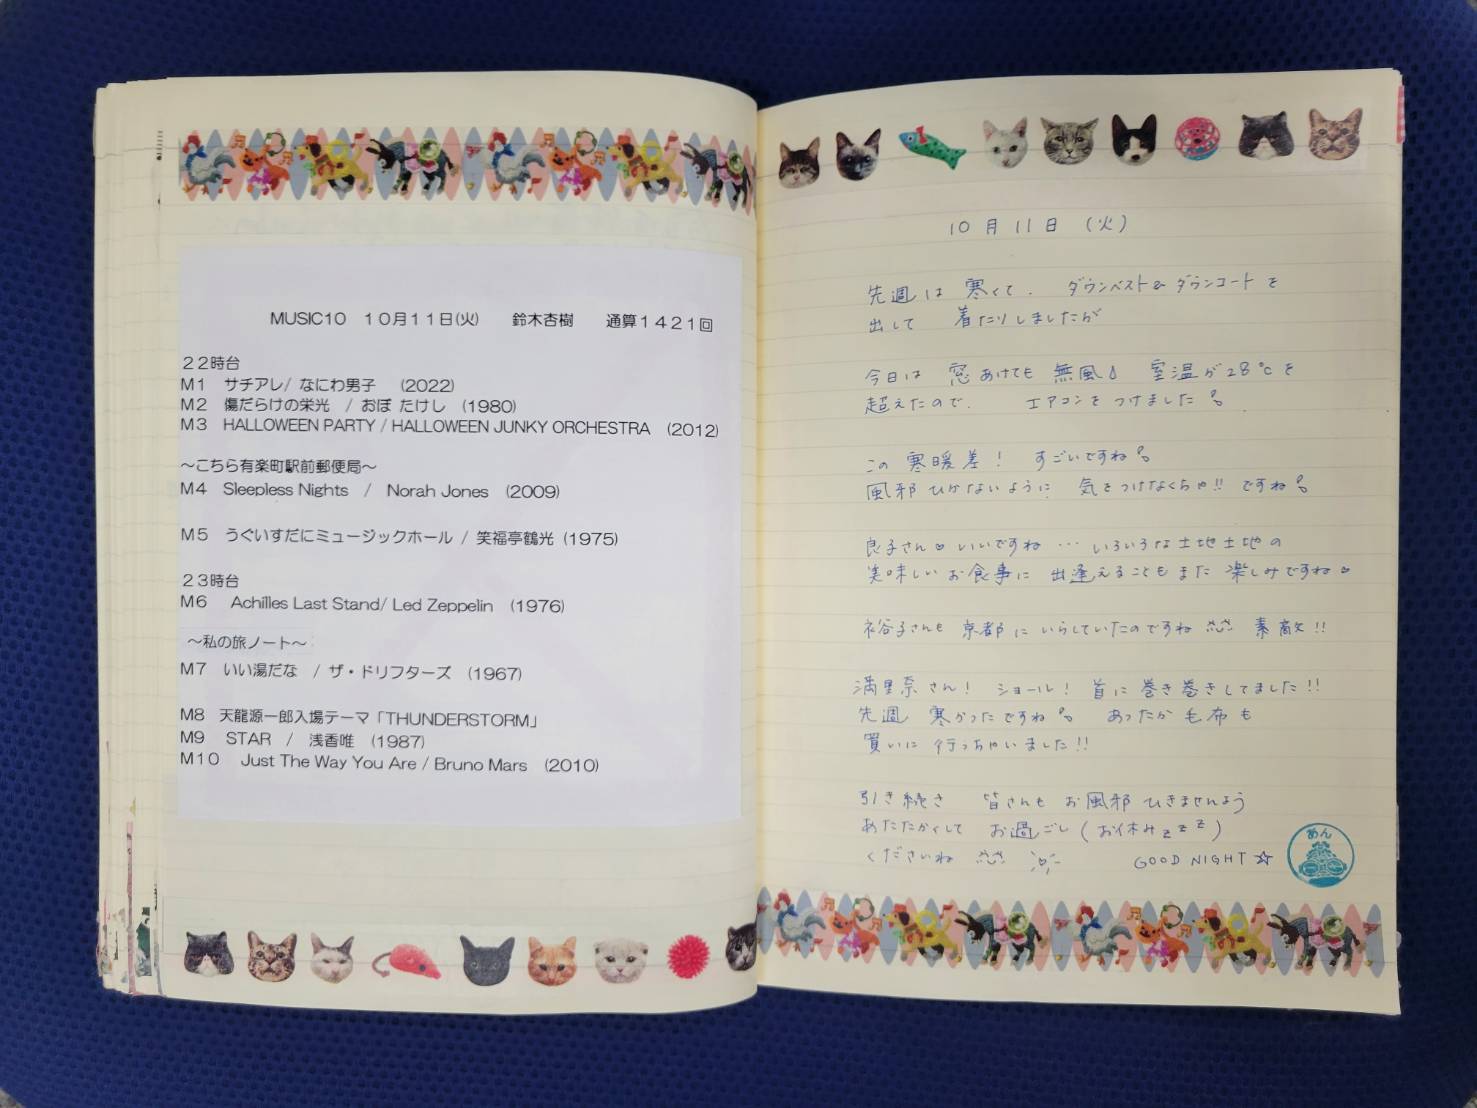 MUSIC10 10月11日(火) 鈴木杏樹 通算1421回
22時台
M1 サチアレ/ なにわ男子 (2022)
M2 傷だらけの栄光 / おぼ たけし (1980)
M3 HALLOWEEN PARTY / HALLOWEEN JUNKY ORCHESTRA (2012)
~こちら有楽町駅前郵便局~
M4 Sleepless Nights / Norah Jones (2009)
M5 うぐいすだにミュージックホール / 笑福亭鶴光 (1975)
23時台
M6 Achilles Last Stand/ Led Zeppelin (1976)
~私の旅ノート~
M7 いい湯だな / ザ・ドリフターズ (1967)
M8 天龍源一郎入場テーマ「THUNDERSTORM」
M9 STAR / 浅香唯 (1987)
M10 Just The Way You Are / Bruno Mars (2010)
10月11日 (火)
先週は 寒くて. ダウンベスト& ダウンコートを
出して 着たりしましたが
今日は 窓あけても 無風 室温が28℃を
超えたので. エアコンをつけました
この 寒暖差! すごいですね
風邪 ひかないように 気をつけなくちゃ!! ですね
良子さん いいですね … いろいろな土地土地の
美味しいお食事に 出逢えることもまた 楽しみですね
裕子さんも 京都に いらしていたのですね 素敵!!
満里奈さん! ショール! 首に巻き巻きしてました!!
先週 寒かったですね あったか毛布も
買いに 行っちゃいました!!
引き続き 皆さんも お風邪 ひきませんよう
あたたかくして お過ごし(お休みzzz)
くださいね GOOD NIGHT☆
あん